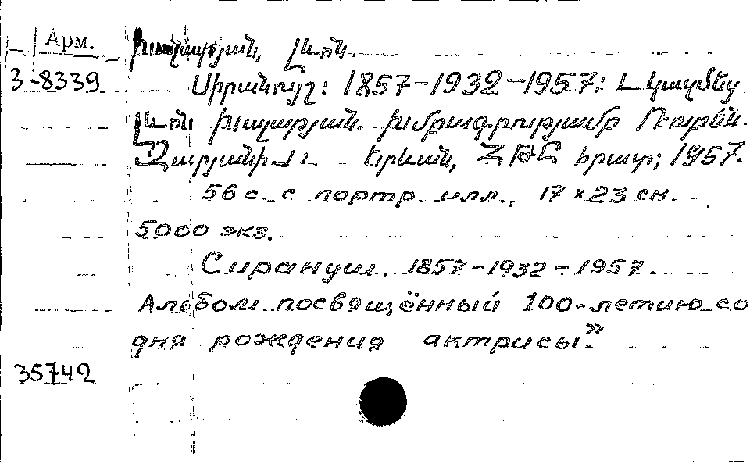 Арм. Խալաթյան, Լևոն.
3-8339 Սիրանույշ: 1857-1932-1957: Կազմեց
Լևոն Խալաթյան. Խմբագրությամբ Ռուբեն
Զարյանի. Երևան, ՀԹԸ հրատ; 1957.
56 с. с портр. илл., 17×23 см.
5000 экз.
Сирануш. 1857-1932-1957.
Альбом посвящённый 100-летию со
дня рождения актрисы."
35742